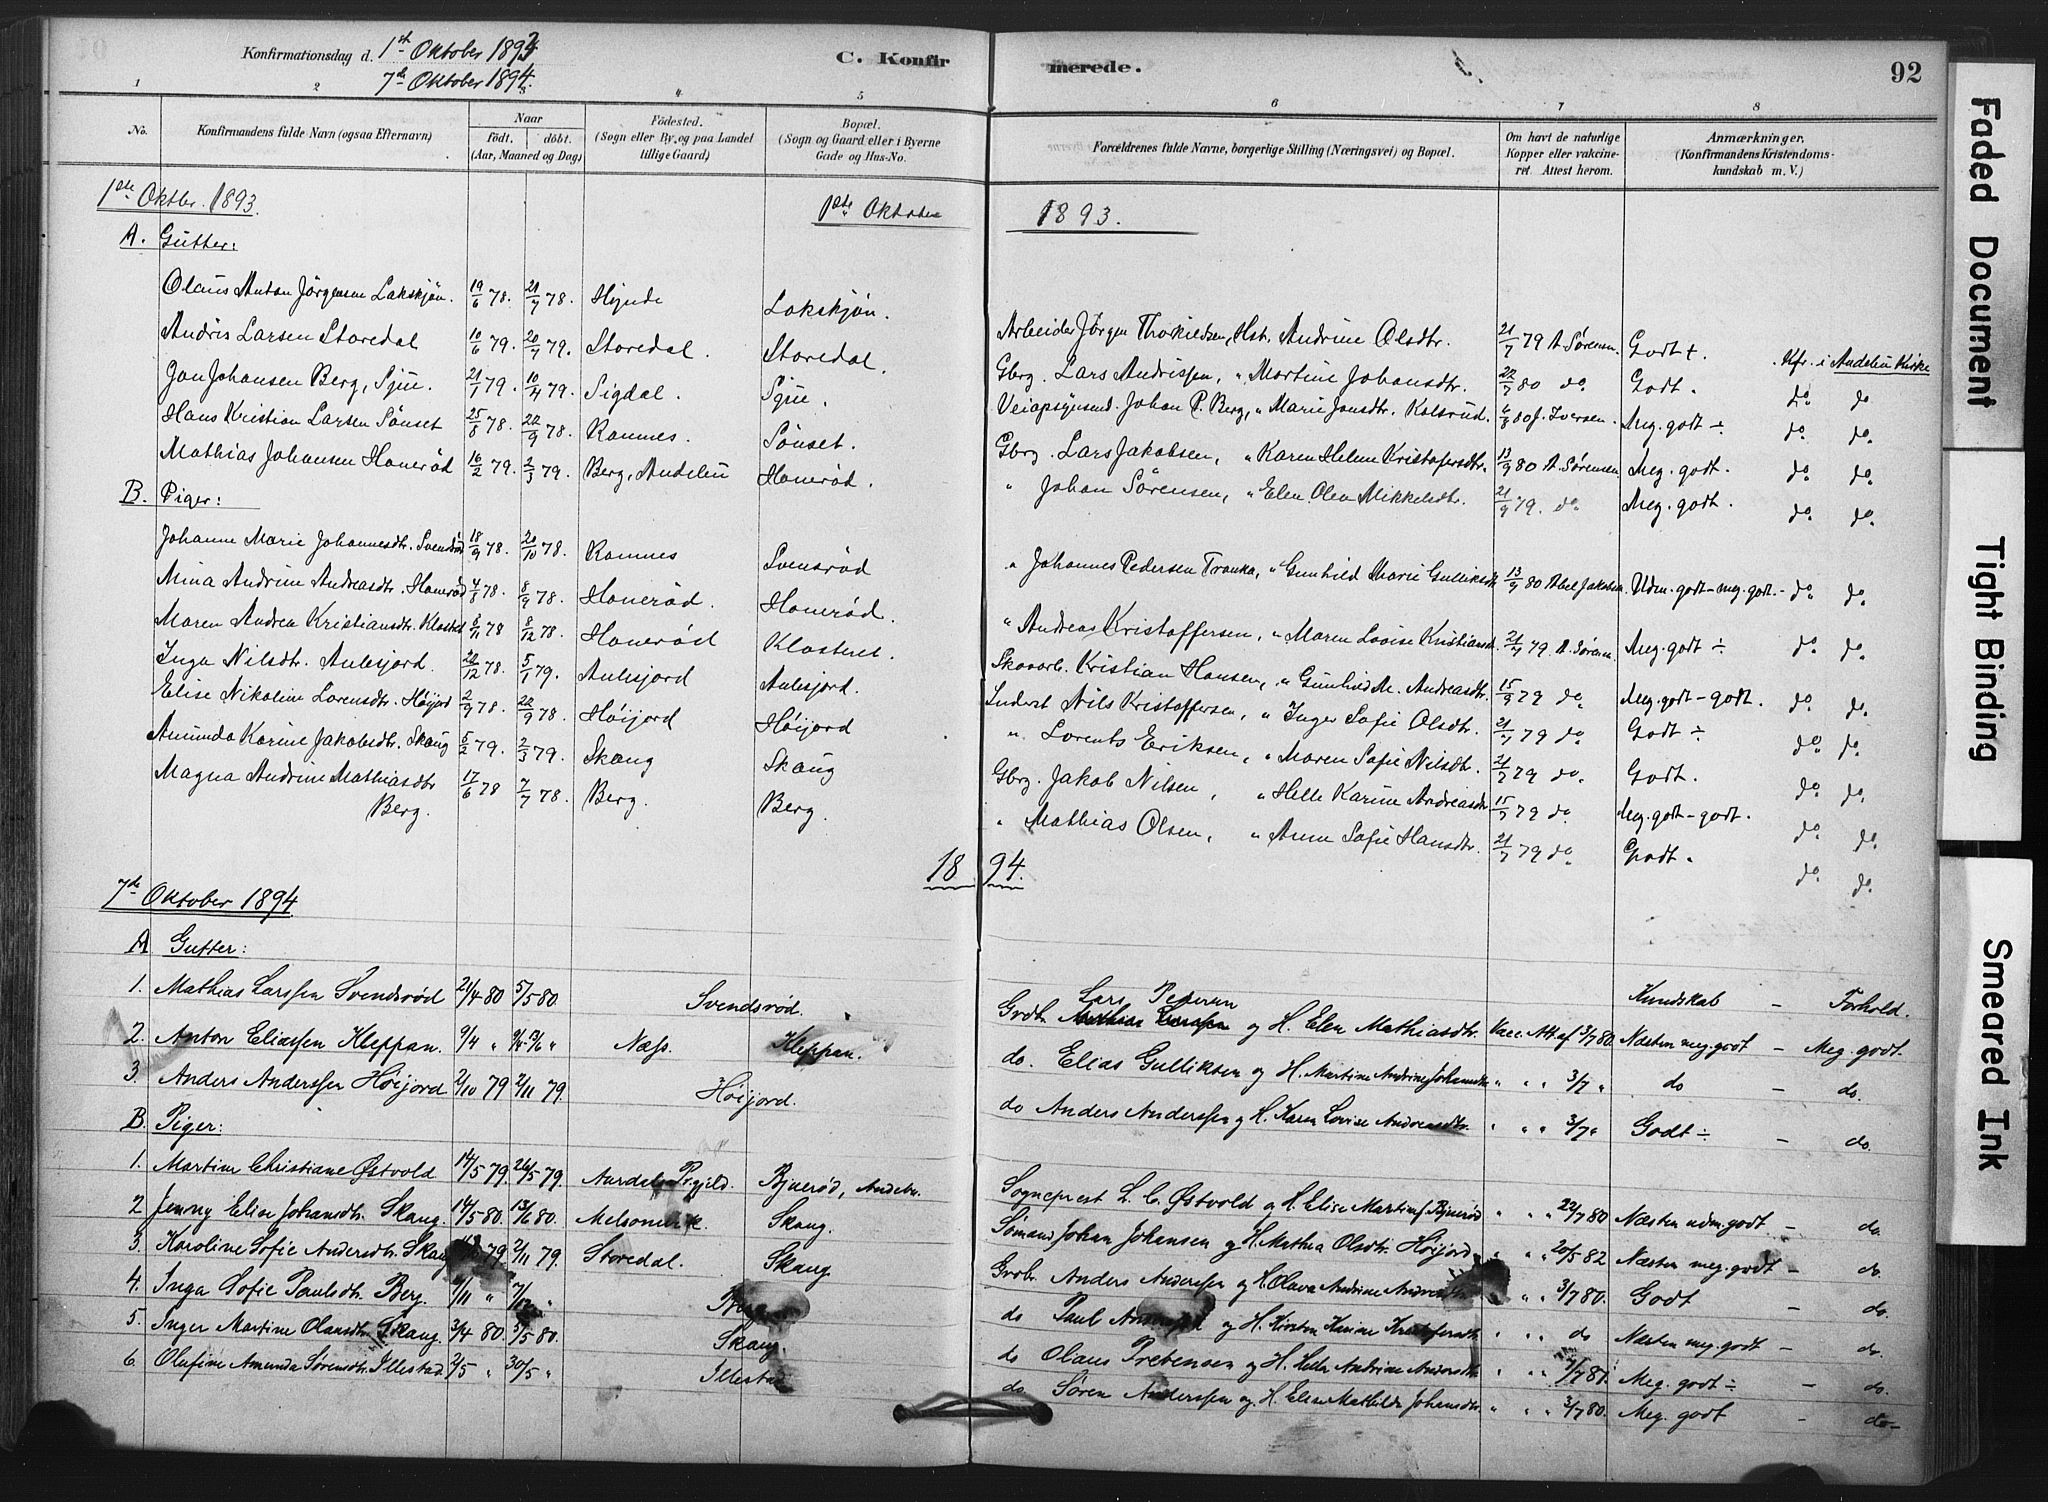 Konfirmationsdag d. 1st Oktober 1893
7de Oktober 1894.
C. Konfirmerede.
92
1 2 3 4 5 6 7 8
No.
Konfirmandens fulde Navn (ogsaa Efternavn)
Naar
födt. döbt.
(Aar, Maaned og Dag)
Födested.
(Sogn eller By, og paa Landet tillige Gaard)
Bopæl.
(Sogn og Gaard eller i Byerne Gade og Hus-No.
Forældrenes fulde Navne, borgerlige Stilling (Næringsvei) og Bopæl.
Om havt de naturlige Kopper eller vakcineret. Attest herom.
Anmærkninger.
(Konfirmandens Kristendomskundskab m. V.)
1ste Oktbr. 1893. 1ste Oktober 1893.
A. Gutter:
Olaus Anton Jörgensen Lakskjön. 19/6 78. 21/7 78. Hynde Lakskjön. Arbeider Jörgen Thorkildsen, Hst. Andrine Olsdtr. 21/7 79 A. Sørensen. Godt +. Kfr. i Andebu Kirke
Andris Larsen Storedal 10/6 79. 20/7 79. Storedal. Storedal. Gbrg. Lars Andrissen, " Martine Johansdtr. 22/7 80 do. Godt. do. do
Jon Johansen Berg, Sjue. 21/1 79. 10/4 79. Sigdal. Sjue. Johan P. Berg, " Marie Jonsdtr. Kolsrud. 80 J. Iversen. Meg. godt ÷ do. do.
Hans Kristian Larsen Sönset 25/8 78. 22/9 78. Ramnes. Sönset. Gbrg. Lars Jakobsen, " Karen Helene Kristofersdtr. 13/9 80 A. Sørensen. Meg. godt. do. do.
Mathias Johansen Honeröd 16/2 79. 2/3 79. Berg, Andebu Honeröd. " Johan Sörensen, " Elen Olea Mikkelsdtr. 21/9 79. do. Meg. godt. do. do.
B. Piger:
Johanne Marie Johannesdtr. Svendsröd 18/9 78. 20/10 78. Ramnes Svensröd " Johannes Pedersen Tranka, " Gunhild Marie Gulliksdtr. 13/9 80 Abel Jakobsen. Udm. godt - meg. godt. - do. do.
Mina Andrine Andreasdtr. Honeröd 4/8 78. 8/9 78. Honeröd. Honeröd. " Andreas Kristoffersen, " Maren Lovise Kristiansdtr. 21/7 79. A. Sørensen. Meg. godt ÷ do. do.
Maren Andrea Kristiansdtr. Klosteret 8/11 78 8/12 78. Honeröd Klosteret. Skovarb. Kristian Hansen, " Gunhild M. Andreasdtr. 15/9 79 do. Meg. godt - godt. do. do.
Inga Nilsdtr. Aulesjord. 22/12 78. 5/1 79. Aulesjord Aulesjord. Inderst Nils Kristoffersen, " Inger Sofie Olsdtr. 21/7 79 do. Godt ÷ do. do.
Elise Nikoline Lorensdtr. Höijord 2/9 78. 22/9 78. Höijord Höijord " Lorents Eriksen, " Maren Sofie Nilsdtr. 21/7 79 do. Godt. do. do.
Amunda Karine Jakobsdtr. Skaug 5/2 79. 2/3 79. Skaug Skaug Gbrg. Jakob Nilsen, " Helle Karine Andreasdtr. 15/7 79 do. Meg. godt - godt. do. do.
Magna Andrine Mathiasdtr. 17/6 78 7/7 78. Berg. Berg. " Mathias Olsen, " Anne Sofie Hansdtr. 21/7 79 do Godt. do. do.
Berg.
1894.
7de Oktober 1894
A Gutter:
Kundskab - Forhold.
1. Mathias Larssen Svendsröd 21/4 80 5/5 80. Svendsröd. Grdb. Lars Petersen og H. Elen Mathiasdtr. Vacc. Att. af 13/7 80. Næsten meg. godt - Meg. godt.
2. Anton Eliassen Kleppan. 9/4 " Næss. Kleppan. do. Elias Gulliksen og H. Martine Andrine Johansdtr. " " 3/7 " do - do.
3. Anders Anderssen Höijord 2/10 79 2/11 79. Höijord. do Anders Anderssen og H. Karen Lovise Andreasdtr. " " 3/7 " Godt ÷ - do.
B. Piger:
1. Martine Christiane Østvold 14/5 79. 26/5 79. Aurdals Pr.gjeld. Bjueröd, Andebu. Sogneprest L. C. Østvold og H. Elise Martins Bjueröd " " 22/7 80 Næsten udm. godt - do.
2 Jenny Elise Johansdtr. Skaug. 14/5 80. 13/6 80. Melsomvik. Skaug. Sömand Johan Johansen og H. Mathea Olsdtr. Höijord " " 20/5 82 Næsten meg. godt - do.
3. Karoline Sofie Andersdtr. Skaug 79 2/11 79. Storedal. Skaug Grdb. Anders Anderssen og H. Olava Andrine Andreasdtr. " " 3/7 80. Godt - do.
4. Inga Sofie Paulsdtr. Berg. 6/11 " 7/12 " Berg do Paul og H. Kirsten Karine Kristofersdtr. " " do Næsten meg. godt - do.
5. Inger Martine Olausdtr. Skaug. 3/4 80. 5/5 80. Skaug. do Olaus Prebensen og H. Helle Andrine Andersdtr. " " 7/7 81. Meg. godt ÷ - do.
6. Olufine Amunda Sörensdtr. Illestad. 2/5 " 30/5 " Illestad do Sören Anderssen og H. Elise Mathilde Johansdtr. " " 3/7 80. Meg. godt - do -
Faded Document
Tight Binding
Smeared Ink